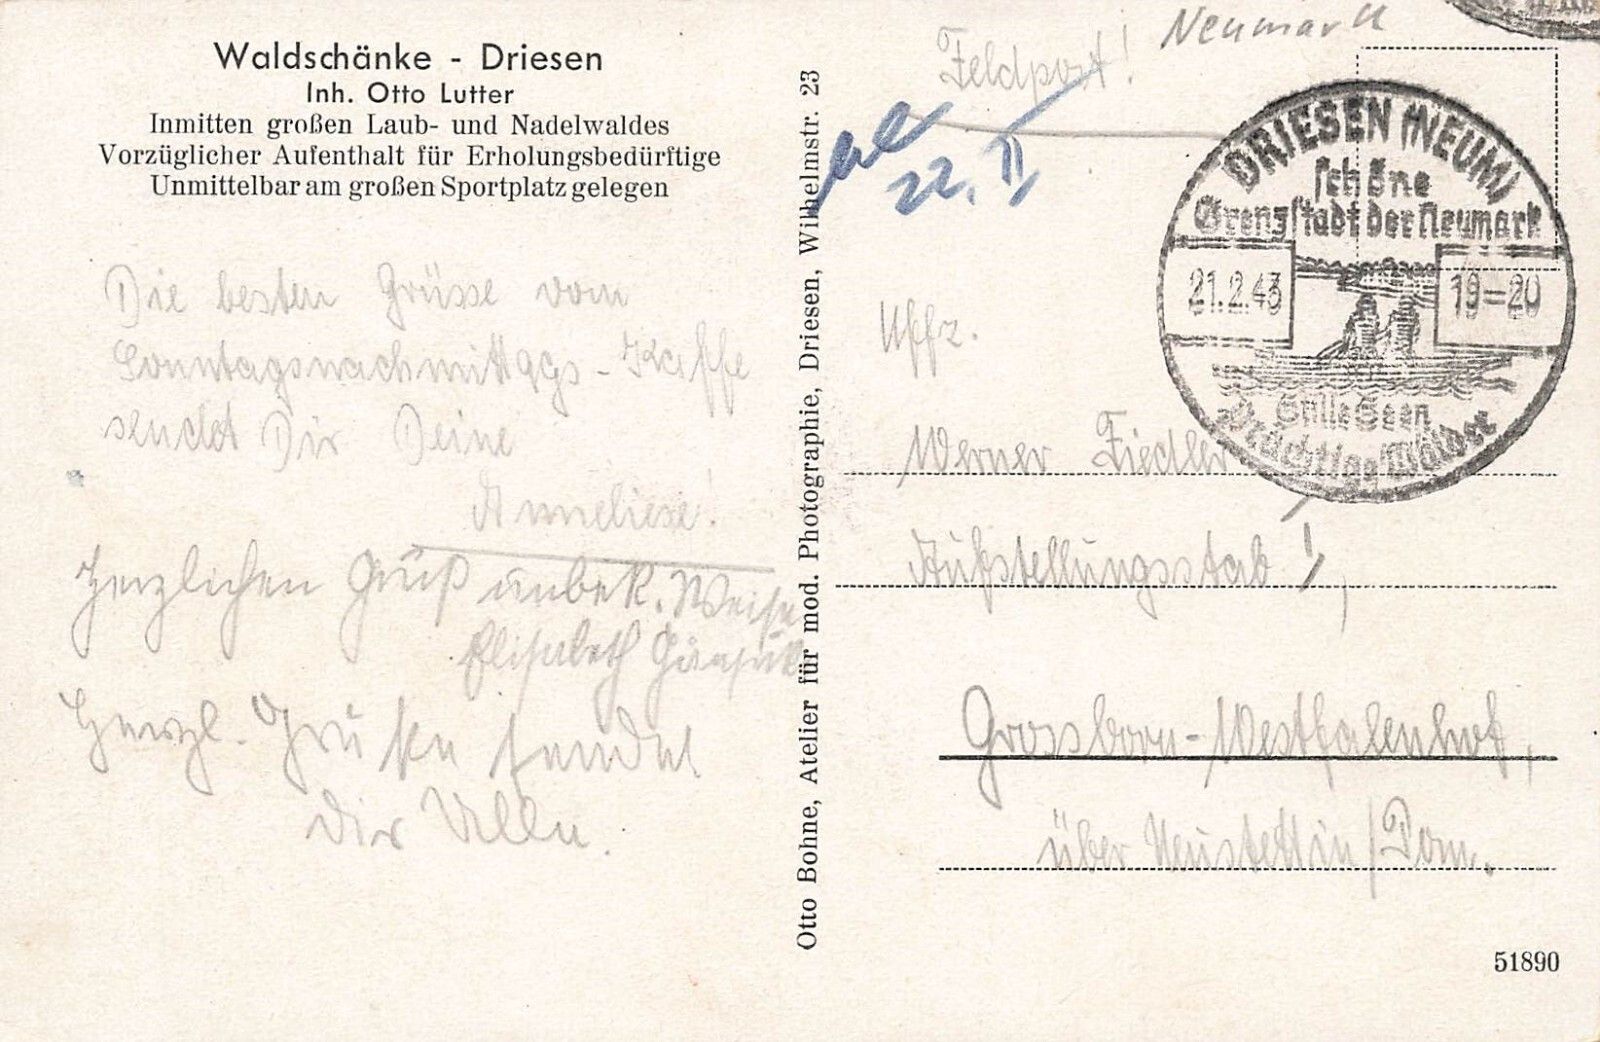 Waldschänke - Driesen
Inh. Otto Lutter
Inmitten großen Laub- und Nadelwaldes
Vorzüglicher Aufenthalt für Erholungsbedürftige
Unmittelbar am großen Sportplatz gelegen
Die besten Grüsse vom
Sonntagsnachmittags-Kaffe
sendet Dir Deine
Anneliese!
Herzlichen Gruß unbek. Weise
Elisabeth
Herzl. Grüße sendet
Dir Ulla.
Otto Bohne, Atelier für mod. Photographie, Driesen, Wilhelmstr. 23
Feldpost!
Neumark
22. II
DRIESEN (NEUM)
schöne
Grenzstadt der Neumark
21.2.43
19-20
Stille Seen
Prächtige Wälder
Uffz.
Werner Fiedler
Aufstellungsstab!,
Grossborn-Westfalenhof,
über Neustettin/Pom.
51890